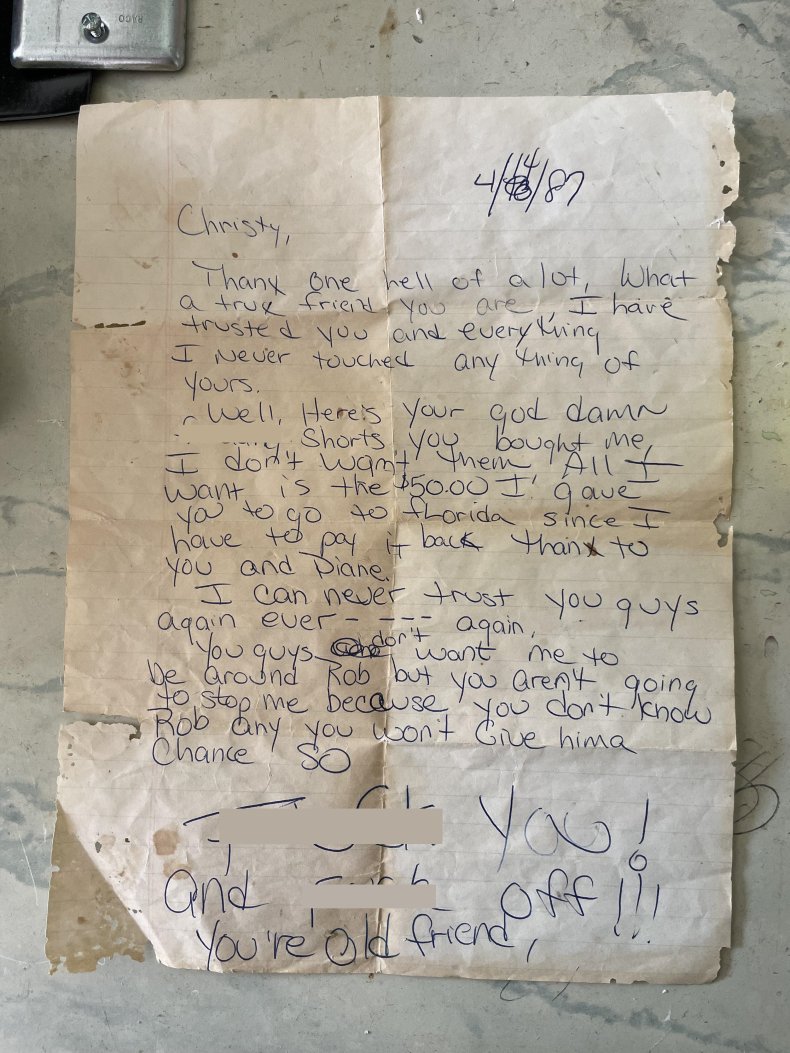 RACO
4/14/87
Christy,
Thanx one hell of a lot, What
a true friend you are, I have
trusted you and everything
I never touched any thing of
yours.
Well, Here's your god damn
Shorts you bought me,
I don't want them All I
want is the $50.00 I gave
you to go to florida since I
have to pay it back thanx to
you and Diane.
I can never trust you guys
again ever - - - - - again.
You guys don't want me to
be around Rob but you aren't going
to stop me because you don't know
Rob any you won't Give him a
Chance SO
you!
and off!!!
You're old friend,